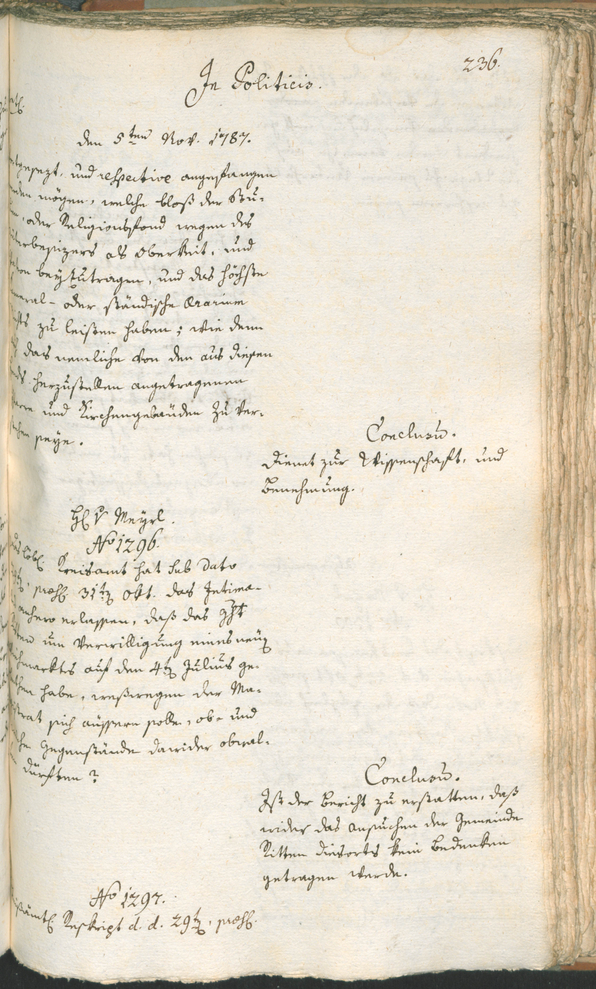 236.
In Politicis.
den 5ten Nov. 1787.
und respective angefangen
werden mögen, welche bloß der Stu-
oder Religionsfond wegen des
als Oberkeit, und
beyzutragen, und das höchste
oder ständische Ærarium
zu leisten haben; wie denn
das nemliche von den aus diesen
herzustellen angetragenen
und Kirchengebäuden zu ver-
seye.
Conclusum.
Dienet zur Wissenschaft, und
Benehmung.
H. v. Meyrl.
No 1296.
Löbl. Kreisamt hat sub dato
præs. 31t. Okt. das Intima-
anhero erlassen, daß das Ght
um Verwilligung eines neuen
auf den 4t. Julius ge-
habe, weßwegen der Ma-
gistrat sich äussern solle, ob- und
Gegenstände dawider obwal-
dürften?
Conclusum.
Ist der Bericht zu erstatten, daß
wider das Ansuchen der Gemeinde
Ritten diesorts kein Bedenken
getragen werde.
No 1297.
Reskript d. d. 29t. præs.